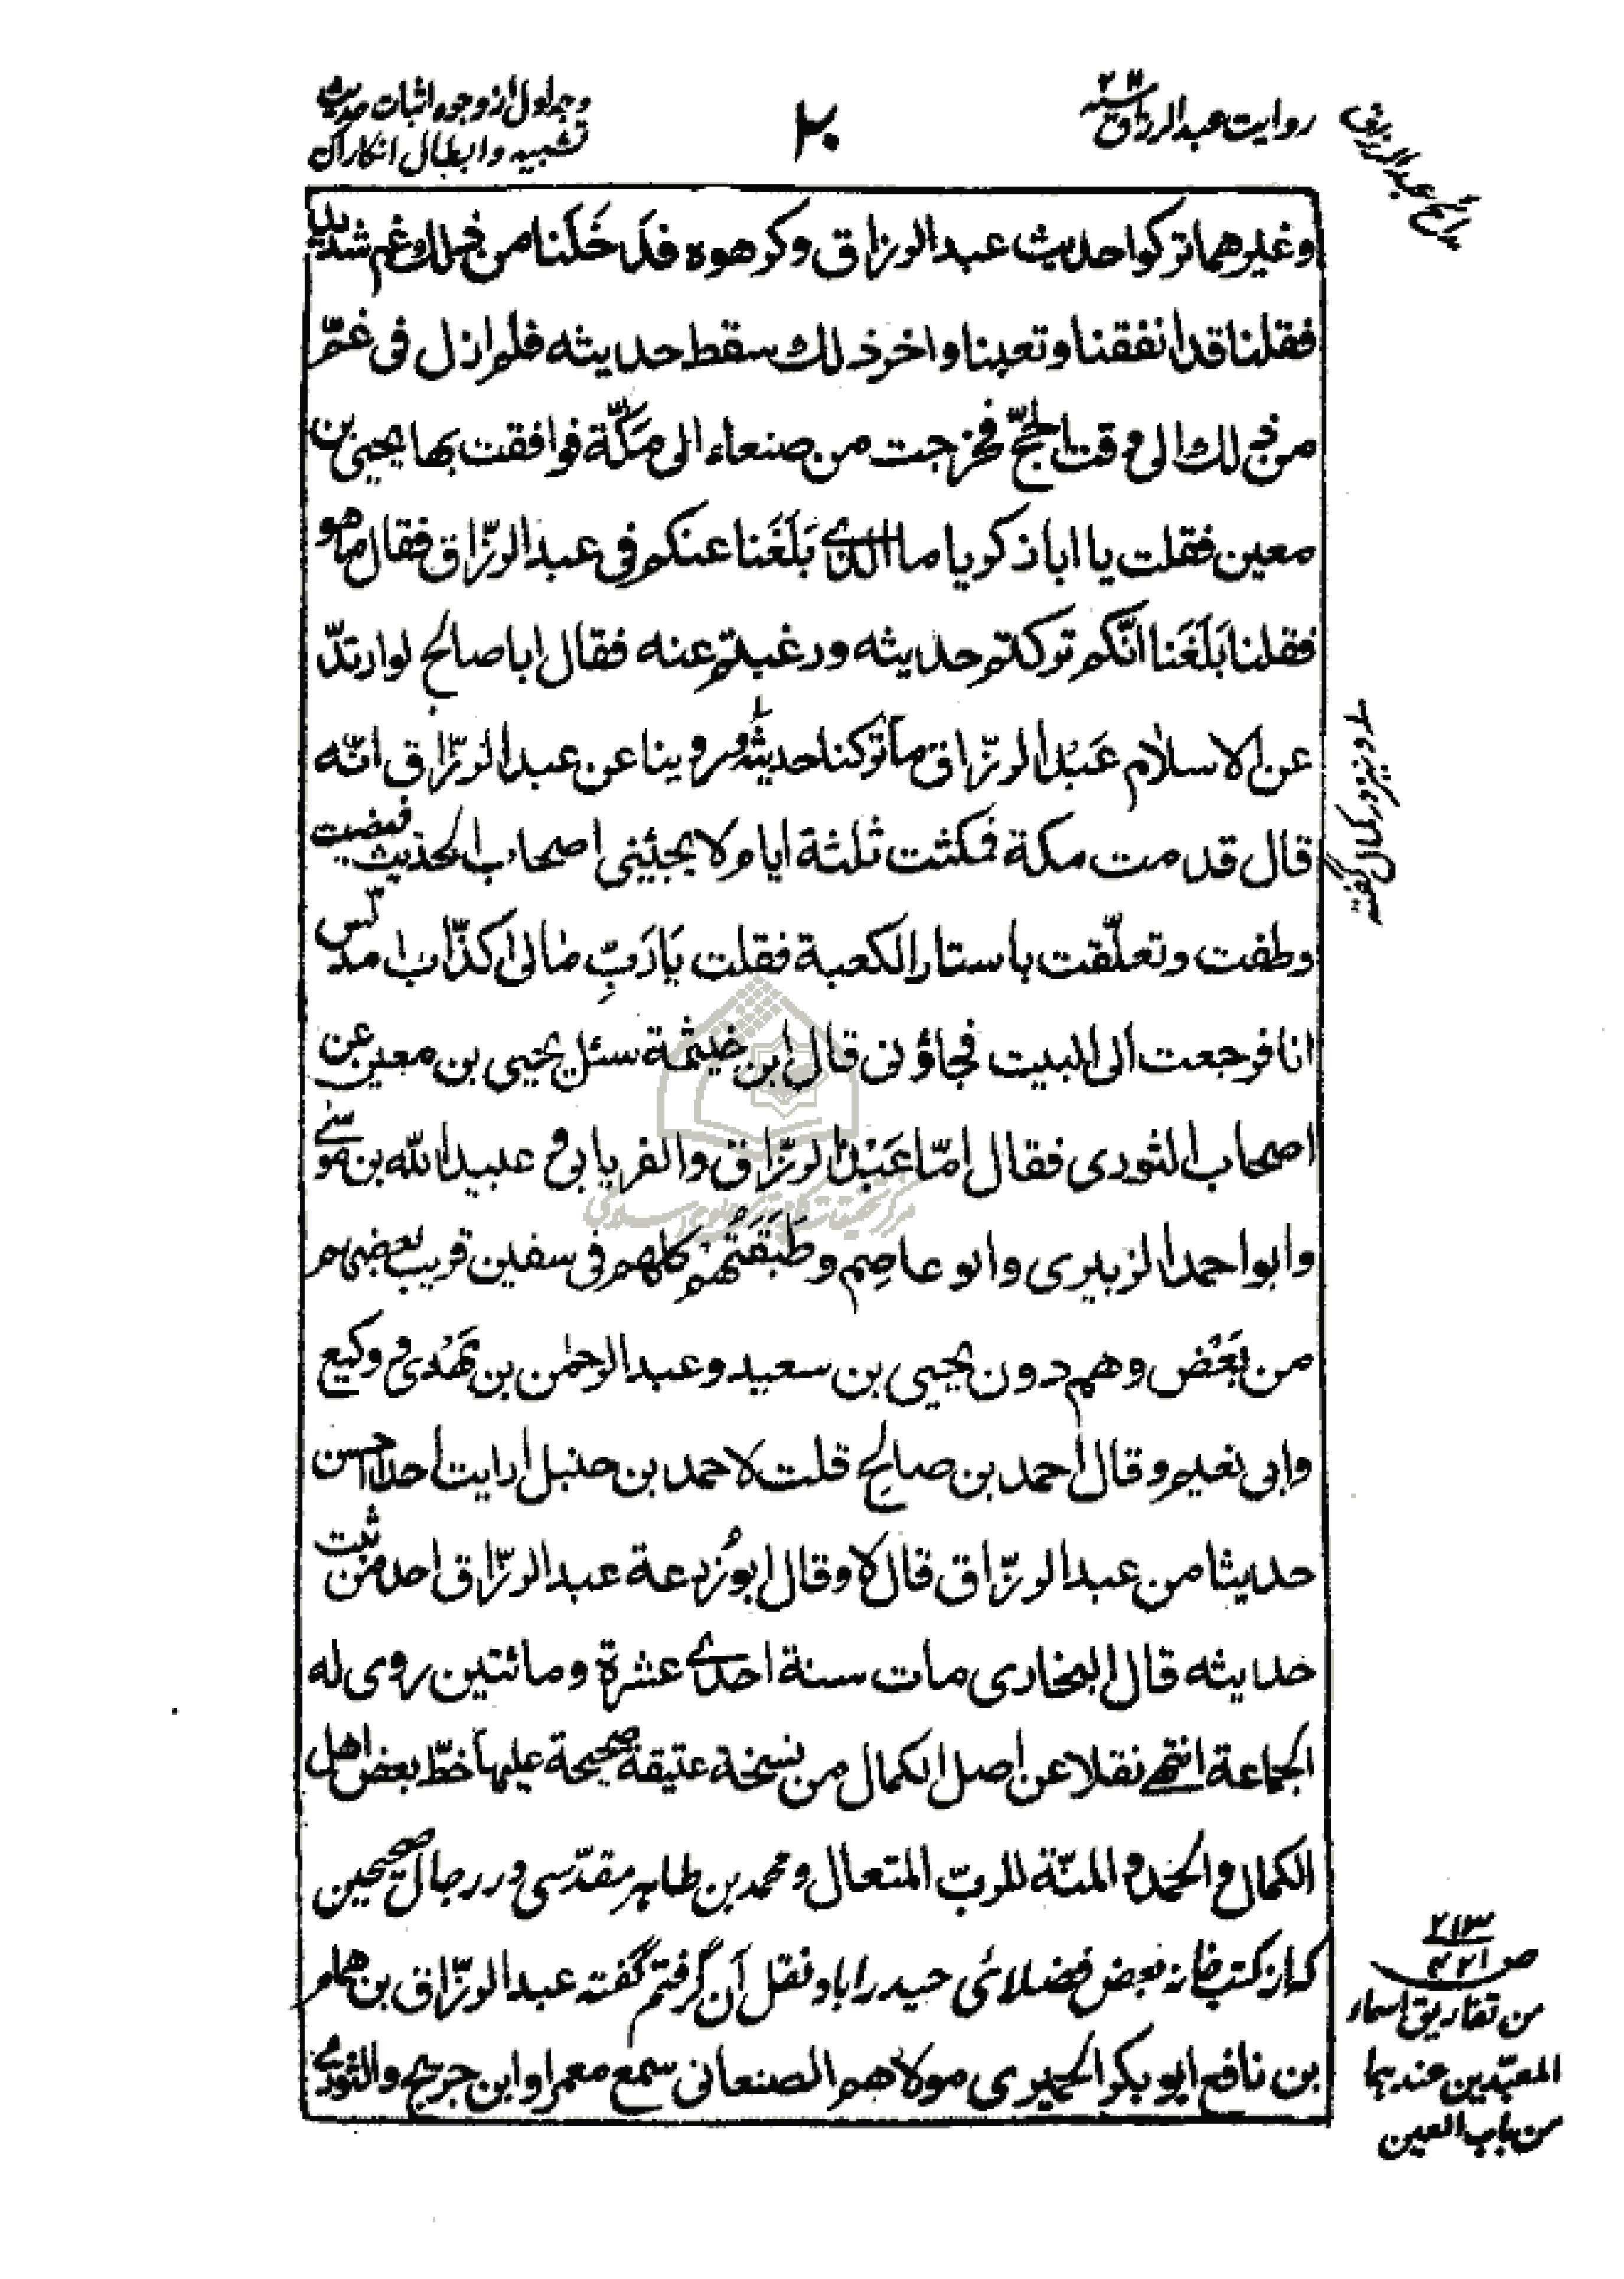 روایت عبدالرزاق
۲۰
وجه اول از وجوه اثبات حدیث
تشبیه وابطال انکار آن
مدائح عبدالرزاق
وغیرهما ترکوا حدیث عبدالرزاق وکرهوه فدَخَلَنا من ذلك غم شدید
فقلنا قد انفقنا وتعبنا واخر ذلك سقط حدیثه فلم ازل فی غمّ
من ذلك الی وقت الحجّ فخرجت من صنعاء الی مَکّة فوافقت بها یحیی بن
معین فقلت یا ابا ذکریا ما الذی بَلَغَنا عنکم فی عبدالرزّاق فقال ما هو
فقلنا بَلَغَنا انّکم ترکتم حدیثه ورغبتم عنه فقال ابا صالح لو ارتدّ
عن الاسلام عَبْد الرزّاق ما ترکنا حدیثه وروینا عن عبدالرزّاق انّه
قال قدمت مکة فمکثت ثلثة ایام لا یجیئنی اصحاب الحدیث فمضیت
وطفت وتعلّقت باستار الکعبة فقلت یَا رَبِّ مالی اکذّاب انا مدلّس
انا فرجعت الی البیت فجاؤنی قال ابن خیثمة سئل یحیی بن معین عن
اصحاب الثوری فقال امّا عَبْد الرزّاق والفریابی و عبیدالله بن موسی
وابو احمد الزبیری وابو عاصِم وطَبَقَتُهُم کلهم فی سفین قریب بعضهم
من بَعْض وهم دون یحیی بن سعید وعبدالرحمٰن بن مَهْدی و وکیع
وابی نعیم وقال احمد بن صالح قلت لاحمد بن حنبل ارایت احدا احسن
حدیثا من عبدالرزّاق قال لا وقال ابو زُرعة عبدالرزّاق احد من ثبت
حدیثه قال البخاری مات سنة احدی عشرة ومائتین روی له
الجماعة انتهی نقلا عن اصل الکمال من نسخة عتیقة صحیحة علیها خطّ بعض اهل
الکمال و الحمد و المنّة للربّ المتعال و محمد بن طاهر مقدّسی در رجال صحیحین
که از کتب خانه بعض فضلائی حیدراباد نقل آن گرفتم گفته عبدالرزّاق بن همام
بن نافع ابو بکر الحمیری مولاهم الصنعانی سمع معمرا وابن جریج والثوری
ونیز در کمال گفته
من تفاریق اسماء
المعبّدین عندهما
من باب العین